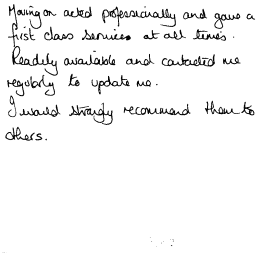 Moving on acted professionally and gave a
first class service at all times.
Readily available and contacted me
regularly to update me.
I would strongly recommend them to
others.